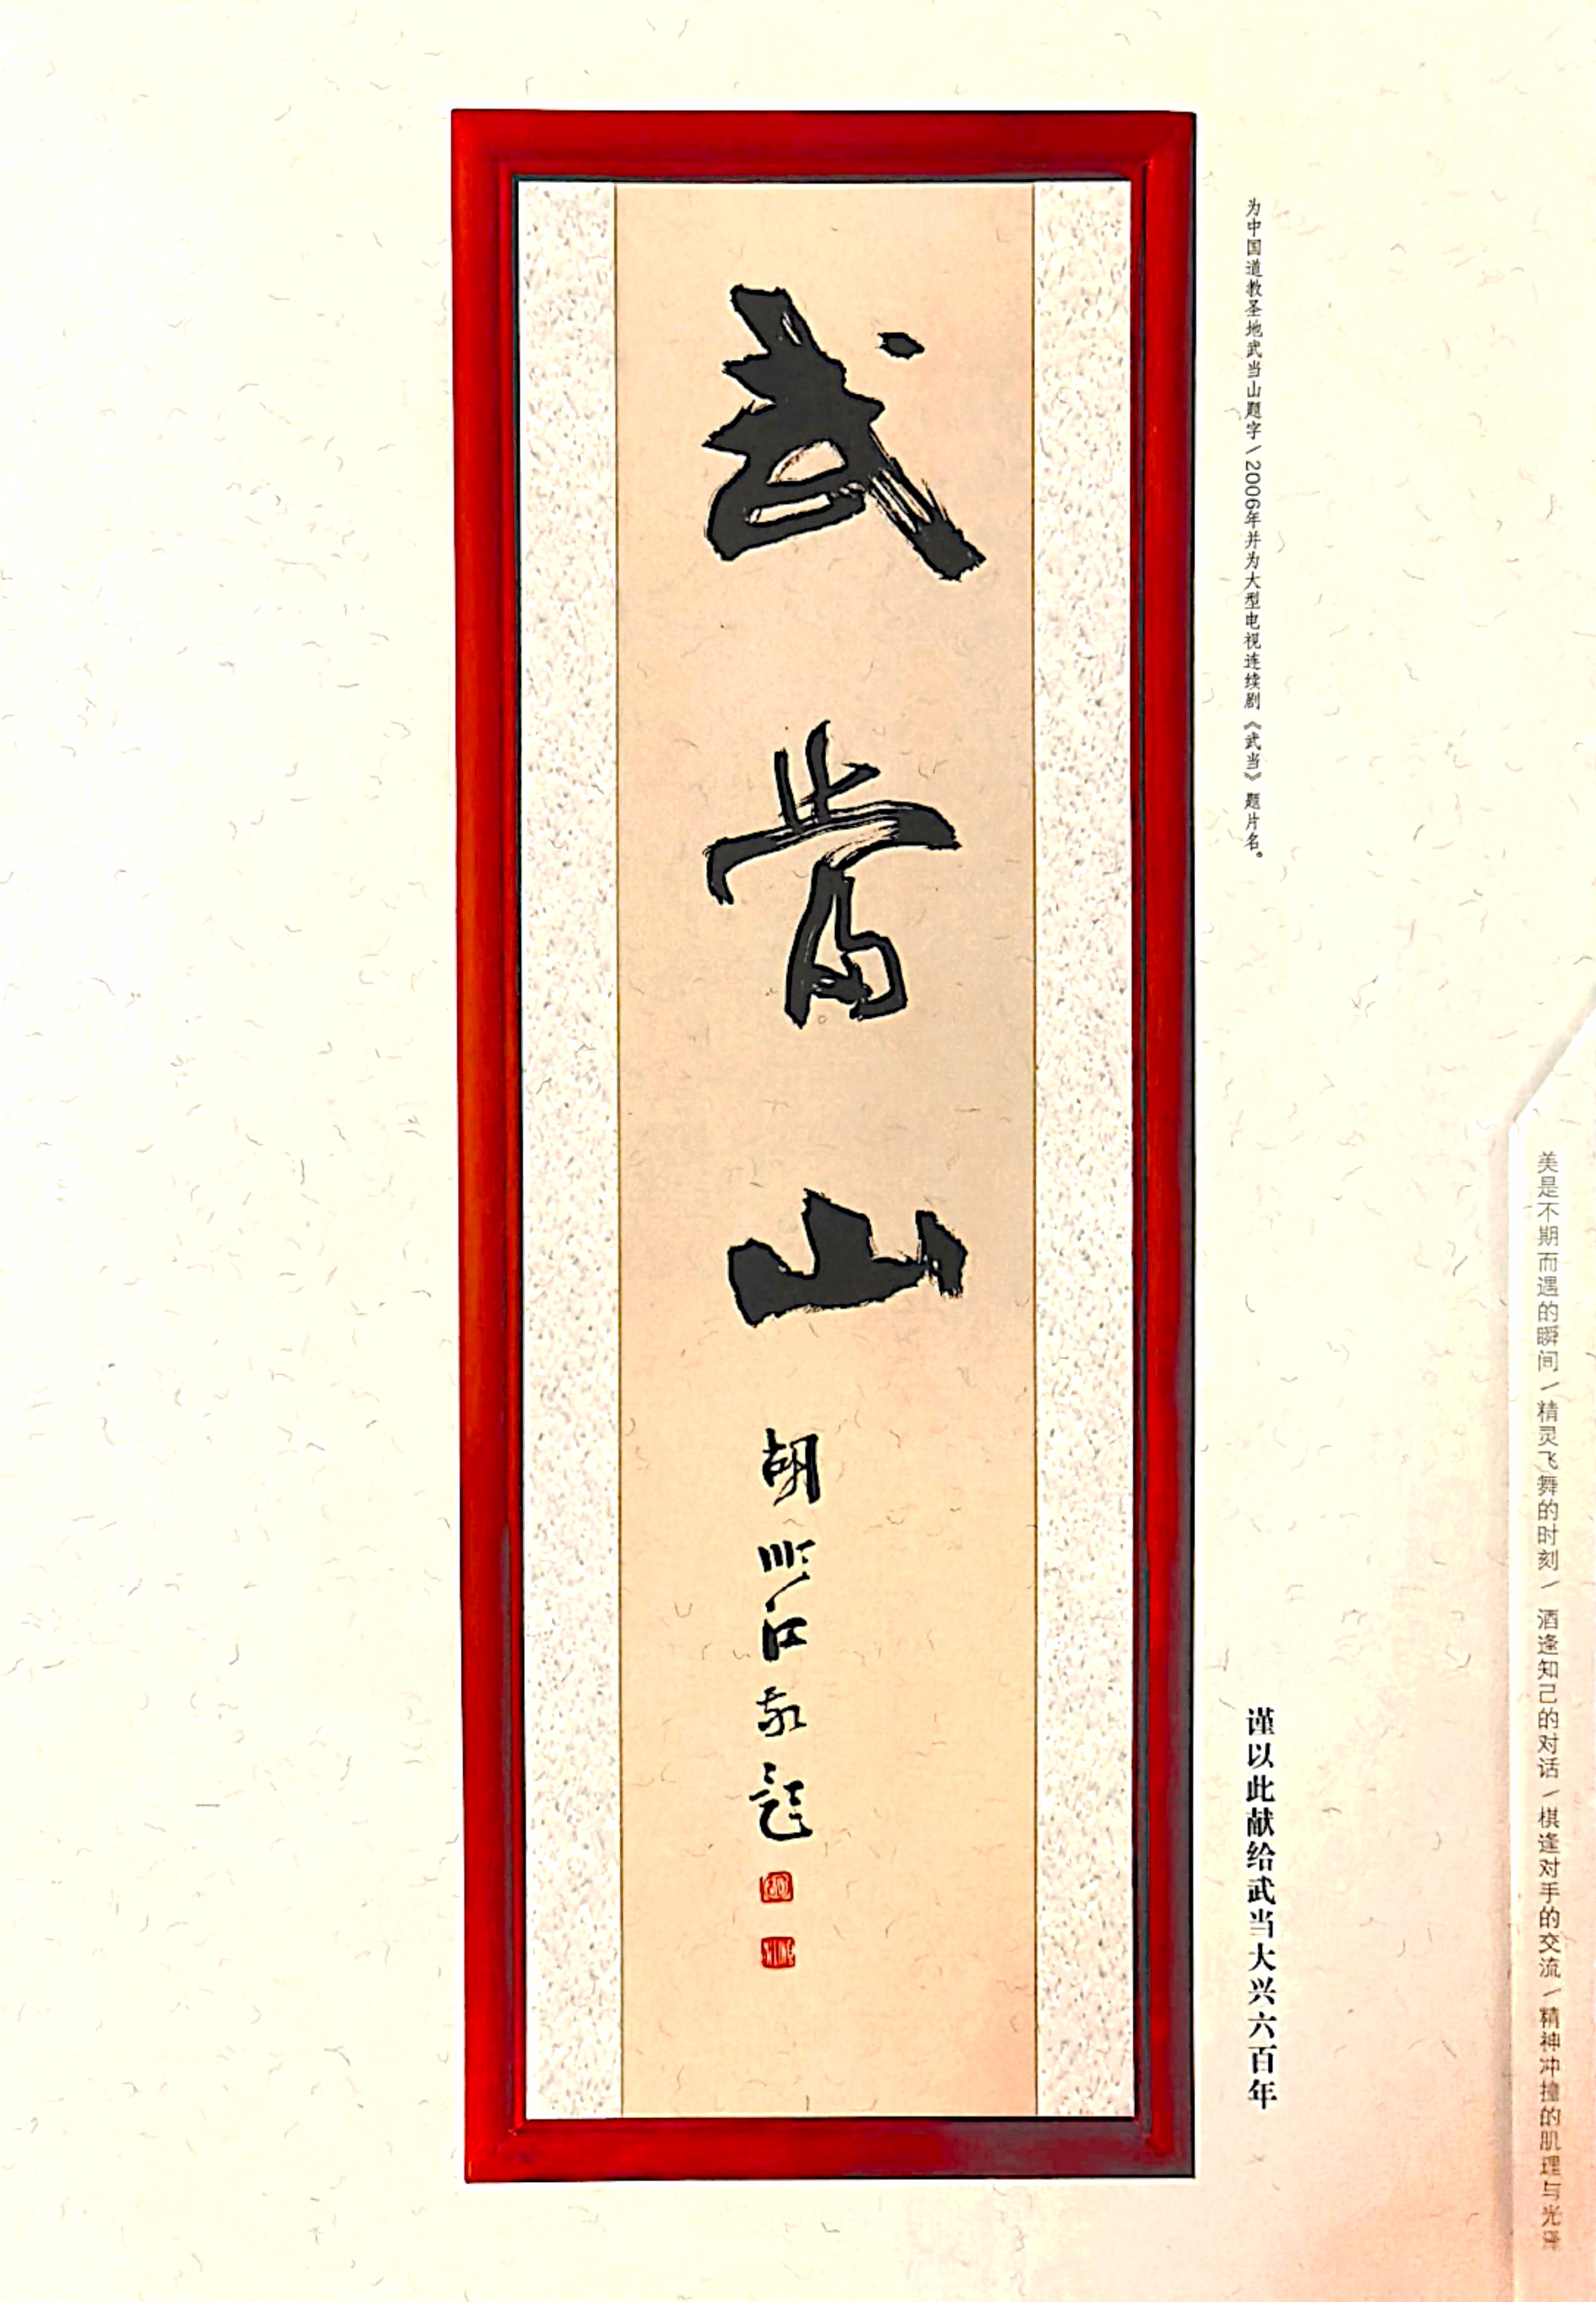 武當山
胡順江敬题
为中国道教圣地武当山题字/2006年并为大型电视连续剧《武当》题片名。
谨以此献给武当大兴六百年
美是不期而遇的瞬间/精灵飞舞的时刻/酒逢知己的对话/棋逢对手的交流/精神冲撞的肌理与光泽